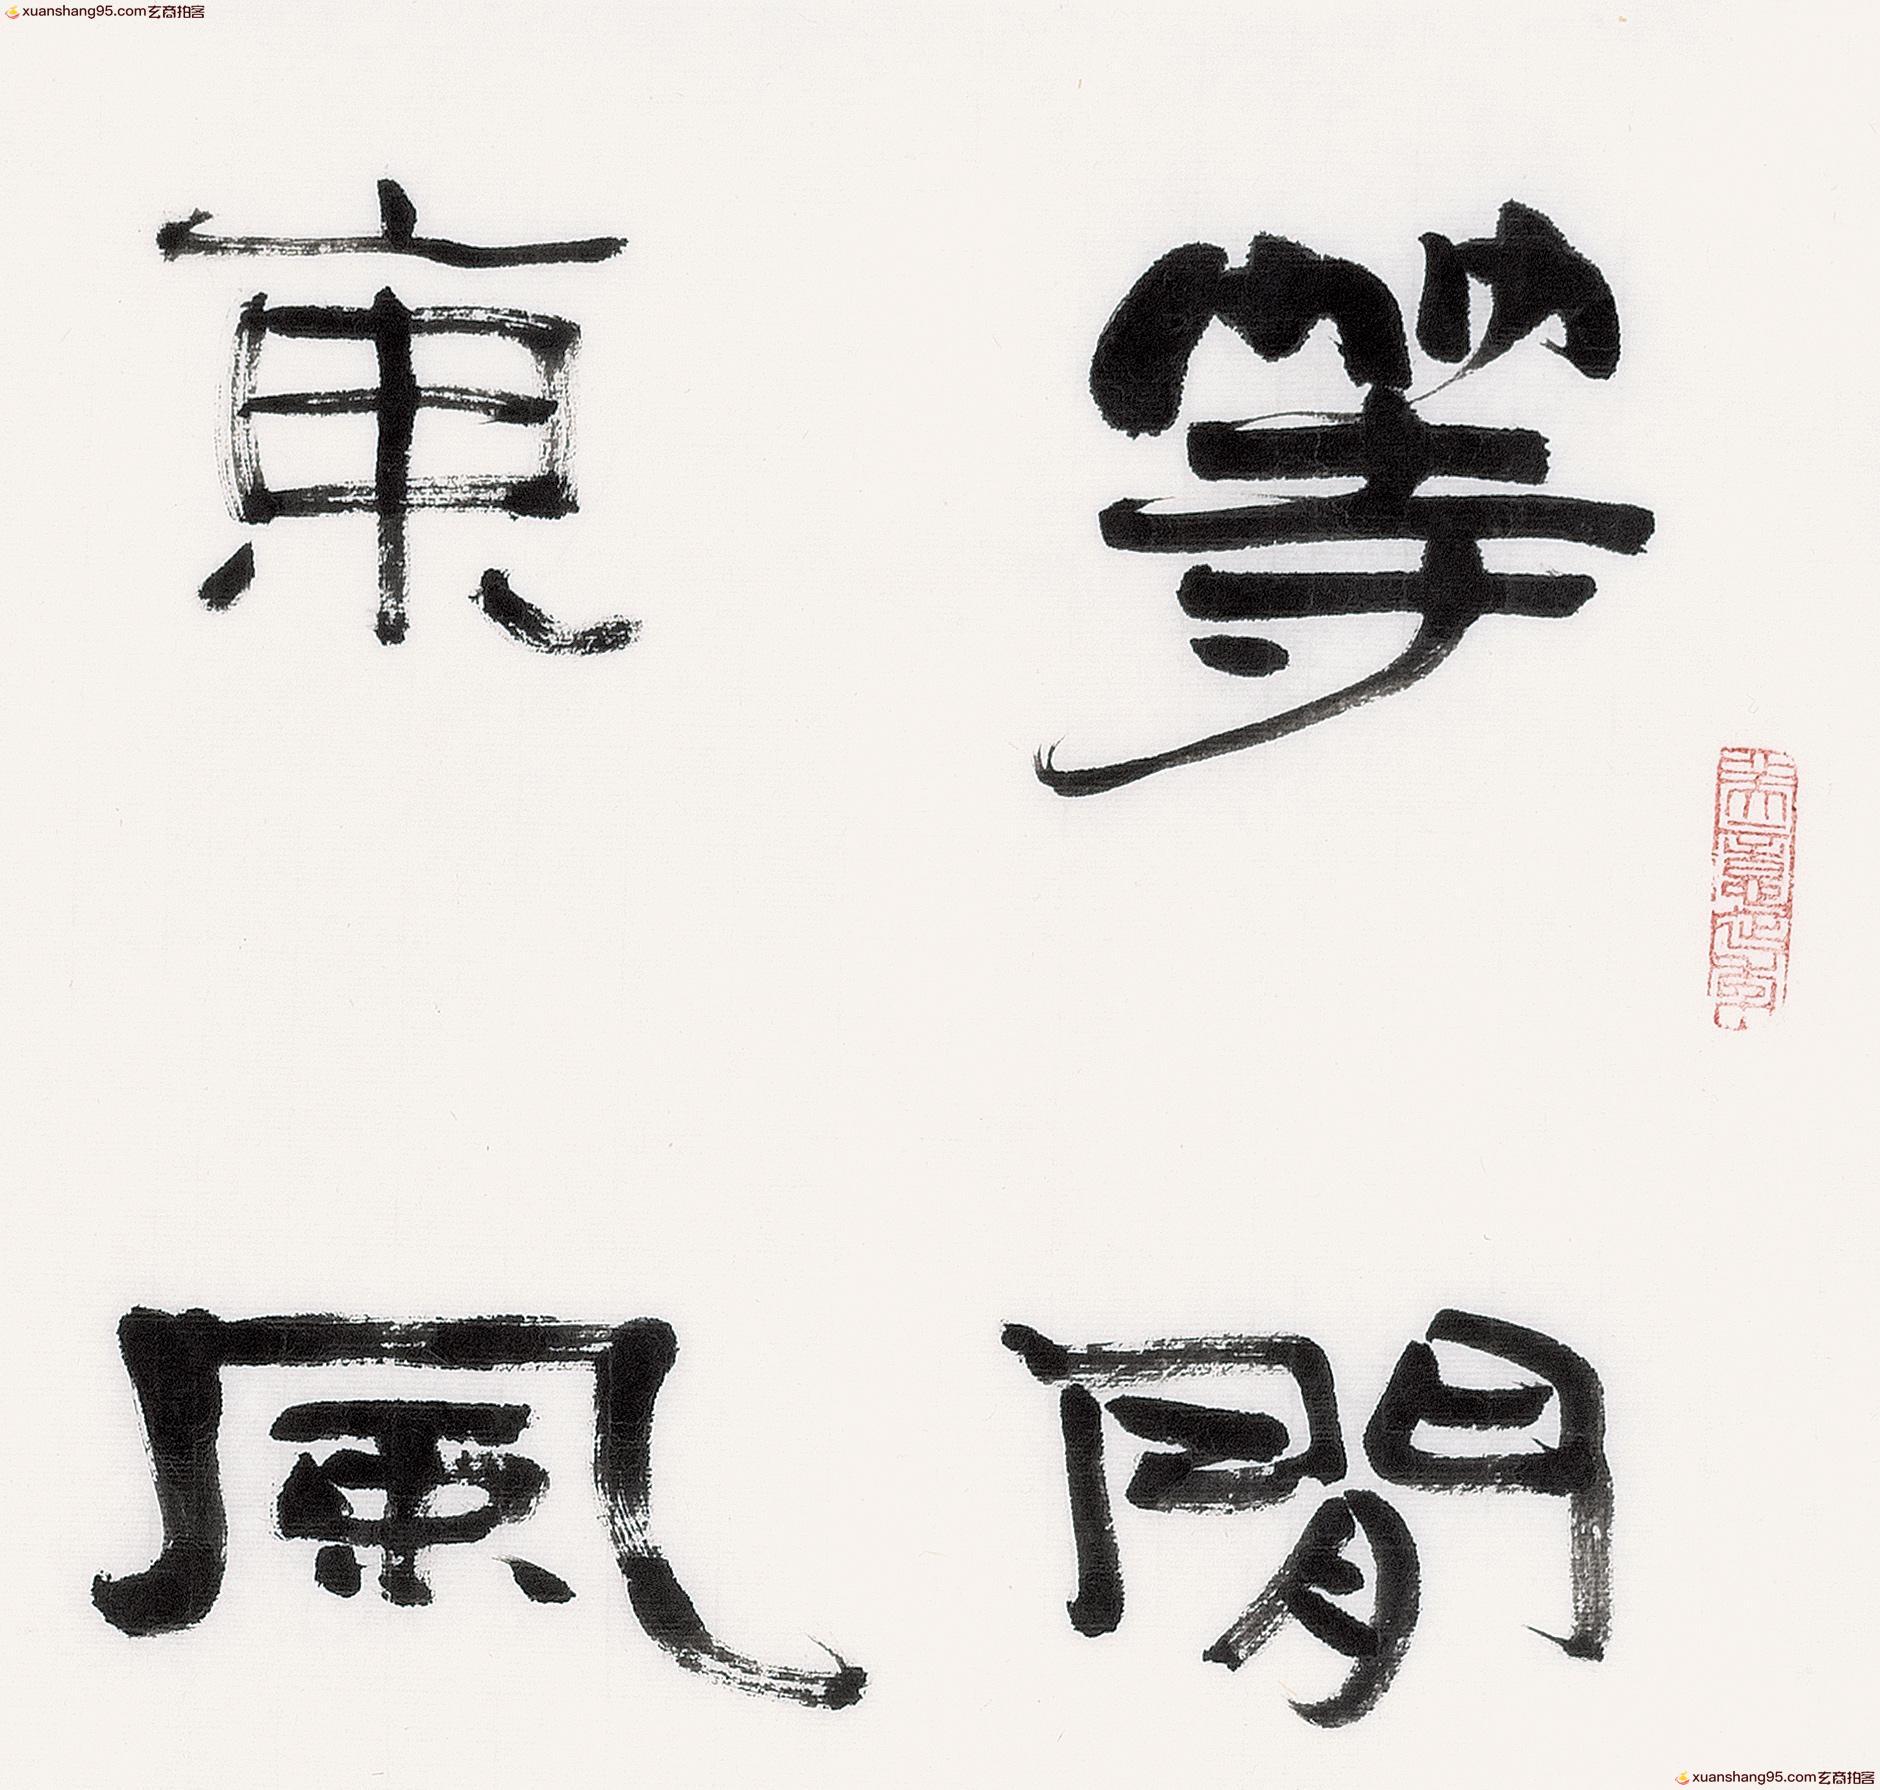 xuanshang95.com玄商拍客
等閒
東風
xuanshang95.com玄商拍客